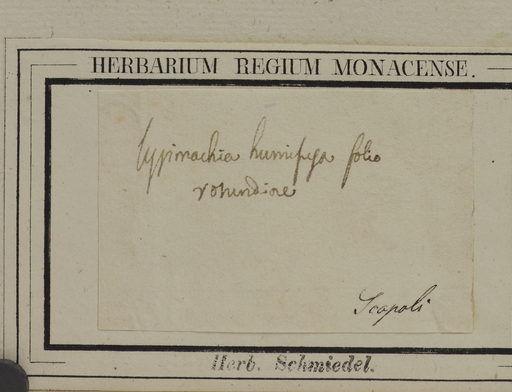 HERBARIUM REGIUM MONACENSE.
Lysimachia humifusa folio
rotundiore
Scopoli
Herb. Schmiedel.